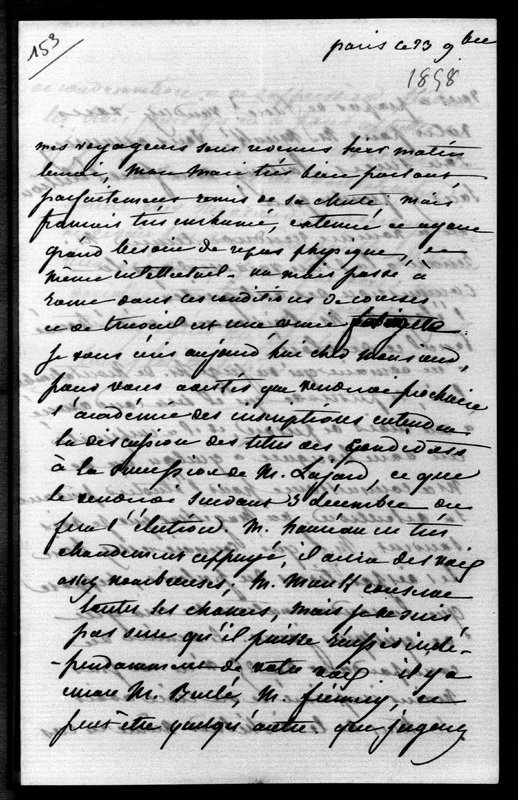 153
paris ce 23 9bre
1858
mes voyageurs sont revenus hier matin
lundi, mon mari très bien portant,
parfaitement remis de sa chute. mais
francois très enrhumé, exténué et ayant
grand besoin de repos physique, et
même intellectuel. un mois passé à
rome dans ces conditions de courses
et de travail est une vraie
je vous écris aujourd'hui cher monsieur,
pour vous avertir que vendredi prochain
l'académie des inscriptions entendra
la discussion des titres des candidats
à la succession de M. Lajard, et que
le vendredi suivant 3 decembre on
fera l'élection. M. est très
chaudement appuyé, il aura des voix
assez nombreuses, M. conserve
toutes ses chances, mais je ne suis
pas sure qu'il puisse indé-
-pendamment de votre voix. il y a
encore M. Beulé, M. et
peut être quelqu'autre que j'ignore